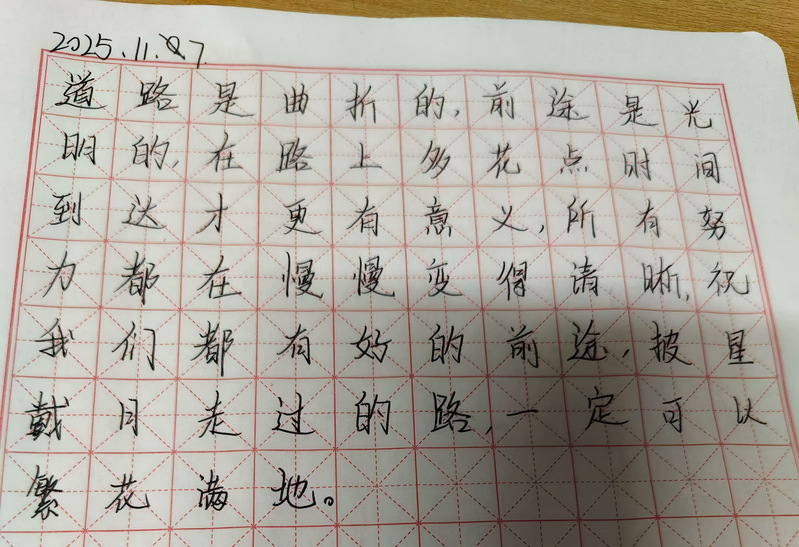 2025.11.07
道路是曲折的,前途是光
明的,在路上多花点时间
到达才更有意义,所有努
力都在慢慢变得清晰,祝
我们都有好的前途,披星
戴月走过的路,一定可以
繁花满地。